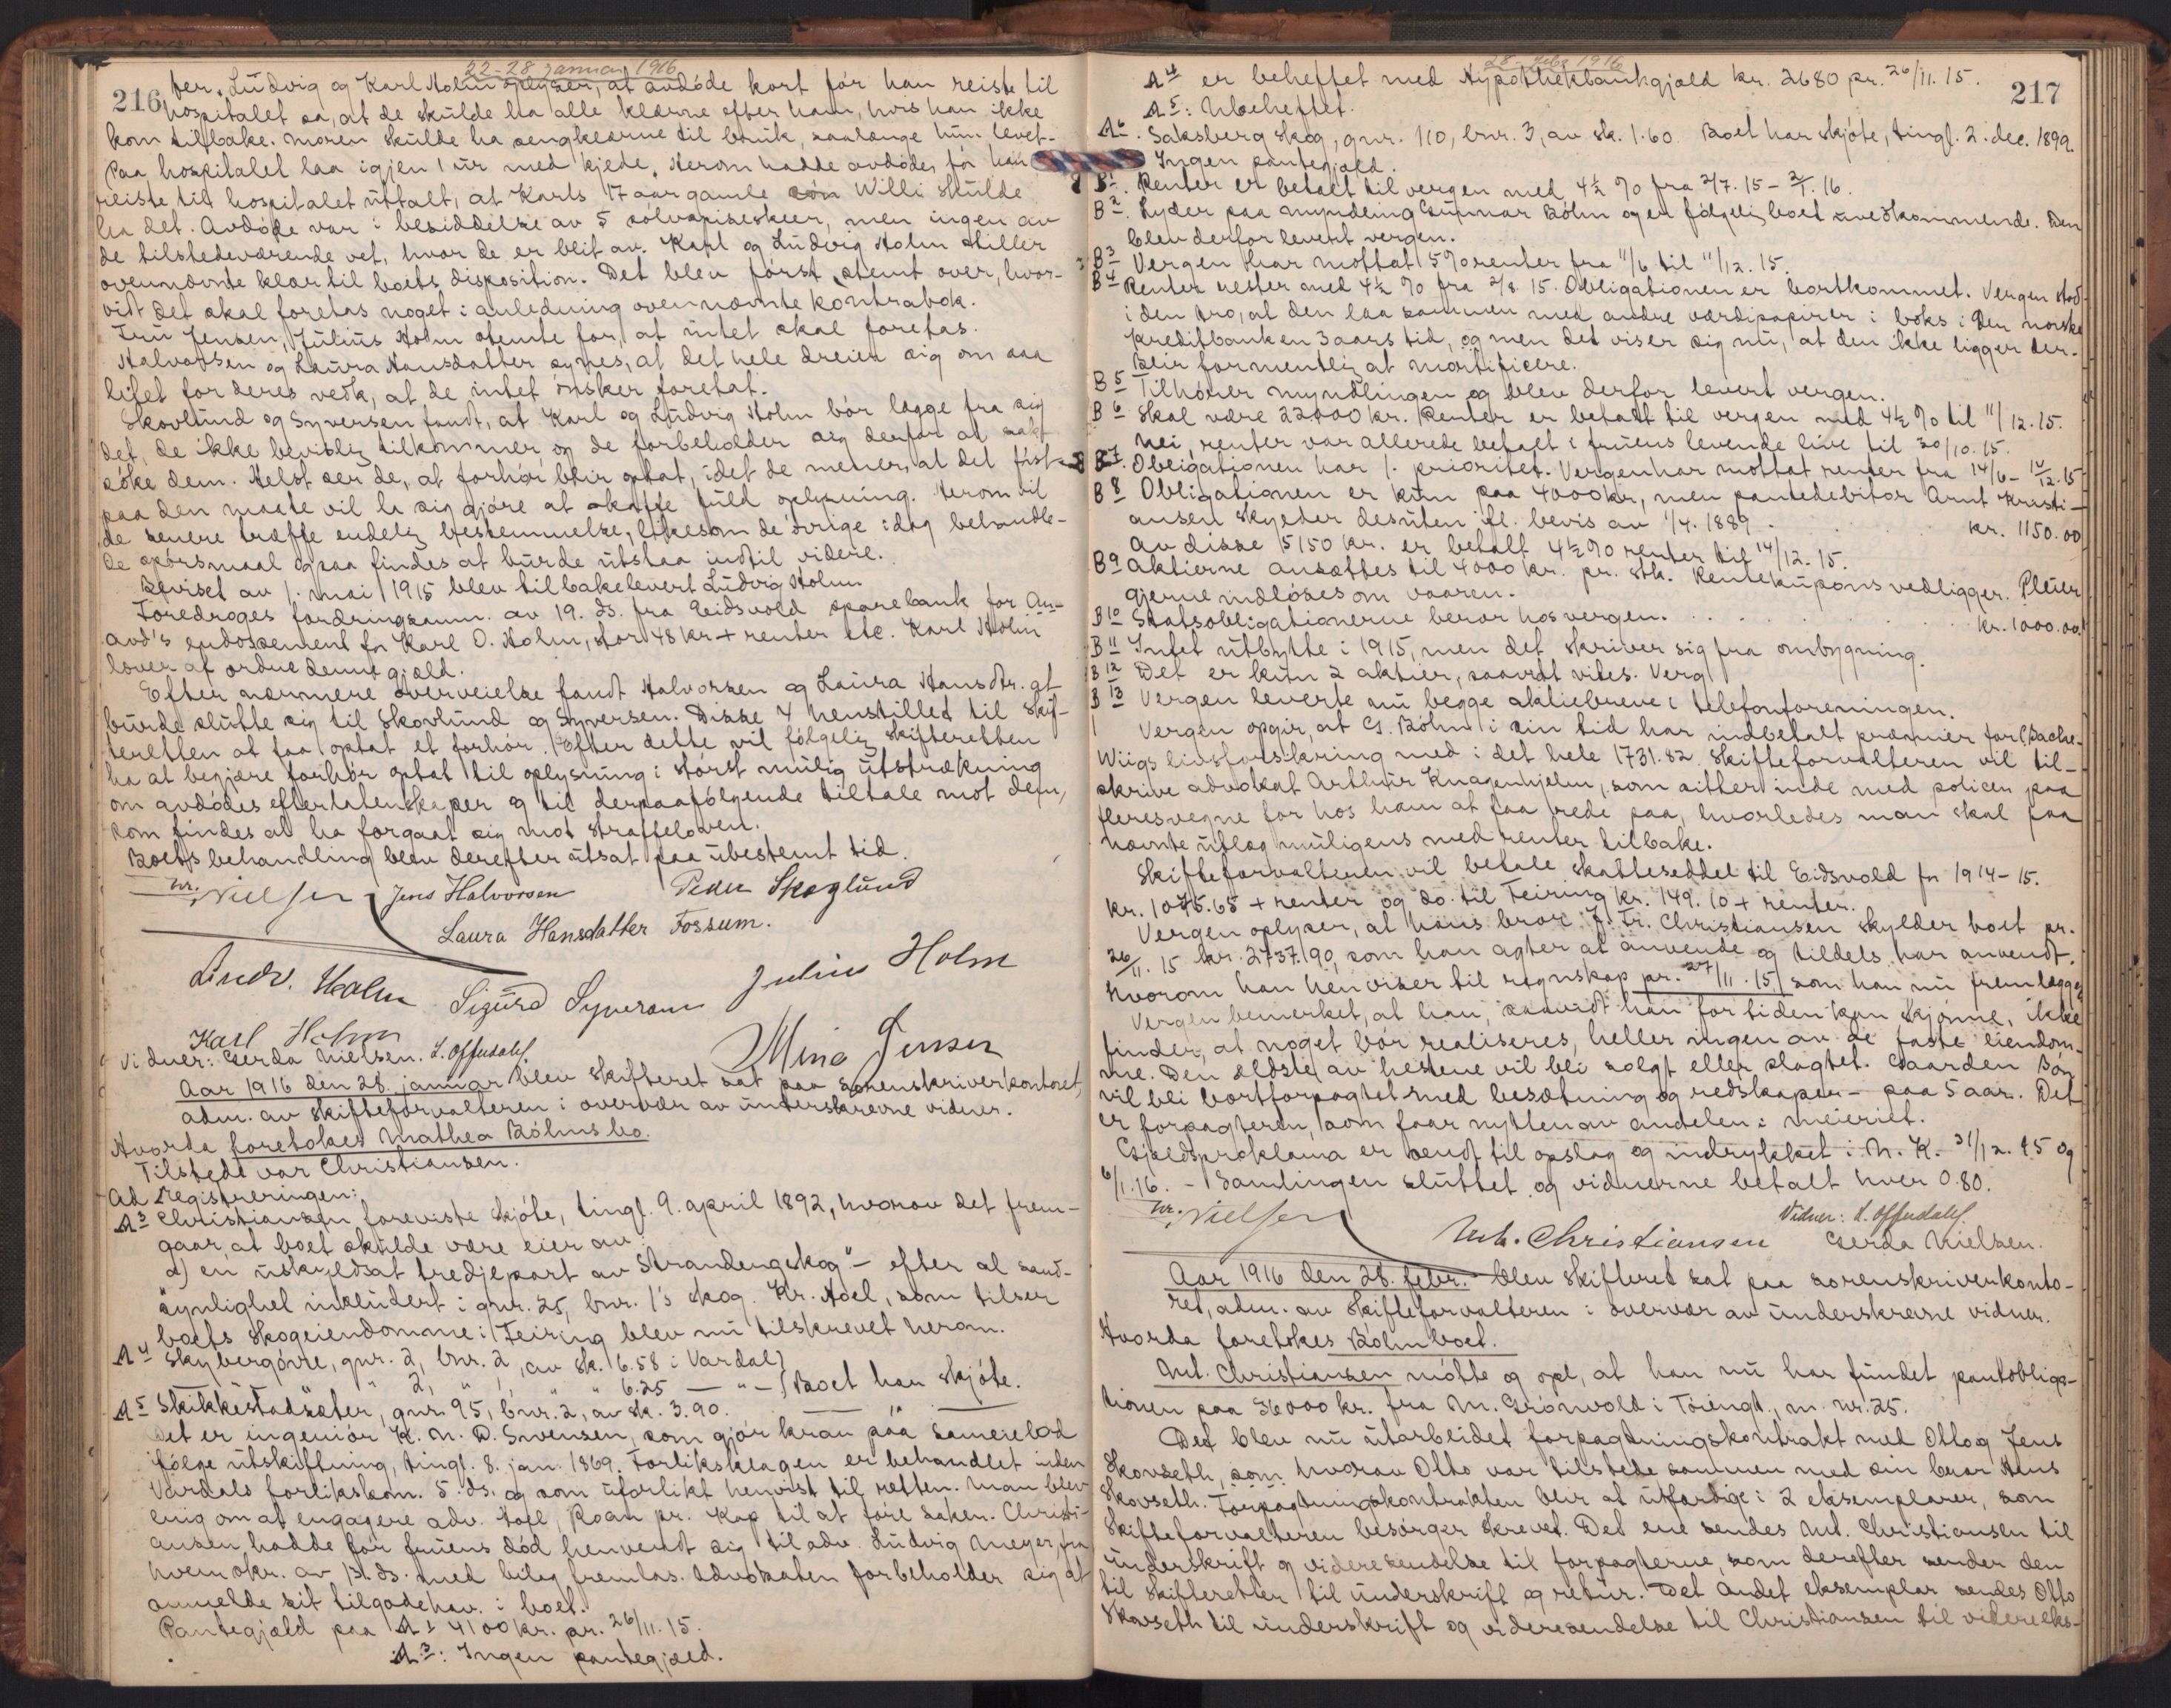 22-28 januar 1916
216
per. Ludvig og Karl Holm oplyser, at avdöde kort för han reiste til
hospitalet sa, at de skulde ha alle klærne efter ham, hvis han ikke
kom tilbake. Moren skulde ha sengklærne til bruk, saalænge hun levet.
Paa hospitalet laa igjen 1 ur med kjede. Herom hadde avdöde, för han
reiste til hospitalet uttalt, at Karls 17 aar gamle sön Willi skulde
ha det. Avdöde var i besiddelse av 5 sölvspiseskeer, men ingen av
de tilstedeværende vet, hvor de er blit av. Karl og Ludvig Holm stiller
ovennævnte klær til boets disposition. Det blev först stemt over, hvor-
vidt det skal foretas noget i anledning ovennævnte kontrabok.
Fru Jensen, Julius Holm stemte for, at intet skal foretas.
Halvorsen og Laura Hansdatter synes, at det hele dreier sig om saa
litet for deres vedk, at de intet önsker foretat.
Skovlund og Syversen fandt, at Karl og Ludvig Holm bör lægge fra sig
det, de ikke bevislig tilkommer, og de forbeholder sig derfor at sak-
söke dem. Helst ser de, at forhör blir optat, idet de mener, at det först
paa den maate vil la sig gjöre at skaffe fuld oplysning. Herom vil
de senere træffe endelig bestemmelse, likesom de övrige idag behandle-
de spörsmaal ogsaa findes at burde utstaa indtil videre.
Beviset av 1. mai 1915 blev tilbakelevert Ludvig Holm
Foredroges fordringsanm. av 19. ds. fra Eidsvold sparebank for An-
avd's endossement for Karl O. Holm, stor 48 kr + renter etc. Karl Holm
lover at ordne denne gjæld.
Efter nærmere overveielse fandt Halvorsen og Laura Hansdtr. at
burde slutte sig til Skovlund og Syversen. Disse 4 henstillet til skif-
teretten at faa optat et forhör. Efter dette vil fölgelig skifteretten
ha at begjære forhör optat til oplysning i störst mulig utstrækning
om avdödes efterlatenskaper og til derpaafölgende tiltale mot dem,
som findes at ha forgaat sig mot straffeloven.
Boets behandling blev derefter utsat paa ubestemt tid.
W. Nielsen Jens Halvorsen Peder Skoglund
Laura Hansdatter Fossum.
Ludv. Holm Sigurd Syversen Julius Holm
Karl Holm Mina Jensen
Vidner: Gerda Nielsen. L. Offudahl
Aar 1916 den 28. januar blev skifteret sat paa sorenskriverkontoret,
adm. av skifteforvalteren i overvær av underskrevne vidner.
Hvorda foretokes Mathea Böhms bo.
Tilstede var Christiansen.
Ad Registreringen:
A3 Christiansen foreviste skjöte, tingl. 9. april 1892, hvorav det frem-
gaar, at boet skulde være eier av:
a) en uskyldsat tredjepart av "Strandengskog" - efter al sand-
synlighet inkludert i gnr. 25, bnr. 1's skog. Hr. Hoel, som tilser
boets skogeiendomme i Feiring blev nu tilskrevet herom.
A4 Skybergövre, gnr. 2, bnr. 2, av sk. 6.58 i Vardal}
" 2, " 1, " " 6.25 — " — } Boet har skjöte.
A5 Skikkestadsæter, gnr. 95, bnr. 2, av sk. 3.90. — " —
Det er ingeniör K. N. D. Swensen, som gjör krav paa sameielod
ifölge utskiftning, tingl. 8. jan. 1869. Forliksklagen er behandlet inden
Vardals forlikskom. 5. ds. og som uforlikt henvist til retten. Man blev
enig om at engagere adv. Hoel, Roan pr. Kap til at före saken. Christi-
ansen hadde för fruens död henvendt sig til adv. Ludvig Meyer, fra
hvem skr. av 13. ds. med bilag fremlas. Advokaten forbeholder sig at
anmelde sit tilgodehav. i boet.
Pantegjæld paa A1 4100 kr. pr. 26/11. 15.
A3: Ingen pantegjæld.
28. febr 1916
217
A4 er beheftet med Hypothekbankgjæld kr. 2680 pr. 26/11. 15.
A5: Ubeheftet.
A6. Saksberg skog, gnr. 110, bnr. 3, av sk. 1.60. Boet har skjöte, tingl. 2. dec. 1899.
Ingen pantegjæld.
B1. Renter er betalt til vergen med 4½ % fra 2/7. 15 - 2/1. 16.
B2. Lyder paa myndling Gunnar Böhm og er fölgelig boet uvedkommende. Den
blev derfor levert vergen.
B3 Vergen har mottat 5% renter fra 11/6 til 11/12. 15.
B4 Renter rester med 4½ % fra 2/8. 15. Obligationen er bortkommet. Vergen stod
i den tro, at den laa sammen med andre værdipapirer i boks i Den norske
Kreditbanken 3 aars tid, og men det viser sig nu, at den ikke ligger der.
Blir formentlig at mortificere.
B5 Tilhörer myndlingen og blev derfor levert vergen.
B6 Skal være 22000 kr. Renter er betalt til vergen med 4½ % til 11/12. 15.
Nei, renter var allerede betalt i fruens levende live til 30/10. 15.
B7. Obligationen har 1. prioritet. Vergen har mottat renter fra 14/6 - 14/12. 15
B8 Obligationen er kun paa 4000 kr, men pantedebitor Arnt Kristi-
ansen skylder desuten ifl. bevis av 1/4. 1889 . . . kr. 1150.00
Av disse 5150 kr. er betalt 4½ % renter til 14/12. 15.
B9 Aktierne ansættes til 4000 kr. pr. stk. Rentekupons vedligger. Pleier
gjerne indlöses om vaaren.
B10 Statsobligationerne beror hos vergen. . . . . . kr. 1000.00
B11 Intet utbytte i 1915, men det skriver sig fra ombygning.
B12 Det er kun 2 aktier, saavidt vites. Verg
B13 Vergen leverte nu begge aktiebreve i telefonforeningen.
Vergen opgir, at G. Böhm i sin tid har indbetalt præmier for Bache-
Wiigs livsforsikring med i det hele 1731.82. Skifteforvalteren vil til-
skrive advokat Arthur Knagenhjelm, som sitter inde med policen paa
fleresvegne for hos ham at faa rede paa, hvorledes man skal faa
nævnte utlæg muligens med renter tilbake.
Skifteforvalteren vil betale skatteseddel til Eidsvold for 1914-15.
kr. 1075.65 + renter og do. til Feiring kr. 149.10 + renter.
Vergen oplyser, at hans bror J. Fr. Christiansen skylder boet pr.
26/11. 15 kr. 2737.90, som han agter at anvende og tildels har anvendt.
Hvorom han henviser til regnskap pr. 27/11. 15, som han nu fremlægger
Vergen bemerket, at han, saavidt han for tiden kan skjönne, ikke
finder, at noget bör realiseres, heller ingen av de faste eiendom-
me. Den ældste av hestene vil bli solgt eller slagtet. Gaarden Bön
vil bli bortforpagtet med besætning og redskaper - paa 5 aar. Det
er forpagteren, som faar nytten av andelen i meieriet.
Gjældsproklama er sendt til opslag og indrykket i N. K. 31/12. 15 og
6/1. 16. - Samlingen sluttet og vidnerne betalt hver 0.80.
W. Nielsen Vidner: L. Offudahl
Ant. Christiansen Gerda Nielsen.
Aar 1916 den 28. febr. blev skifteret sat paa sorenskriverkonto-
ret, adm. av skifteforvalteren i overvær av underskrevne vidner.
Hvorda foretokes Böhmboet.
Ant. Christiansen mötte og opl, at han nu har fundet pantobliga-
tionen paa 36000 kr. fra M. Grönvold i Töiengt., m. nr. 25.
Det blev nu utarbeidet forpagtningskontrakt med Otto og Jens
Skovseth, som hvorav Otto var tilstede sammen med sin bror Hans
Skovseth. Forpagtningskontrakten blir at utfærdige i 2 eksemplarer, som
skifteforvalteren besörger skrevet. Det ene sendes Ant. Christiansen til
underskrift og videresendelse til forpagterne, som derefter sender den
til skifteretten til underskrift og retur. Det andet eksemplar sendes Otto
Skovseth til underskrift og videresendelse til Christiansen til videreeks-